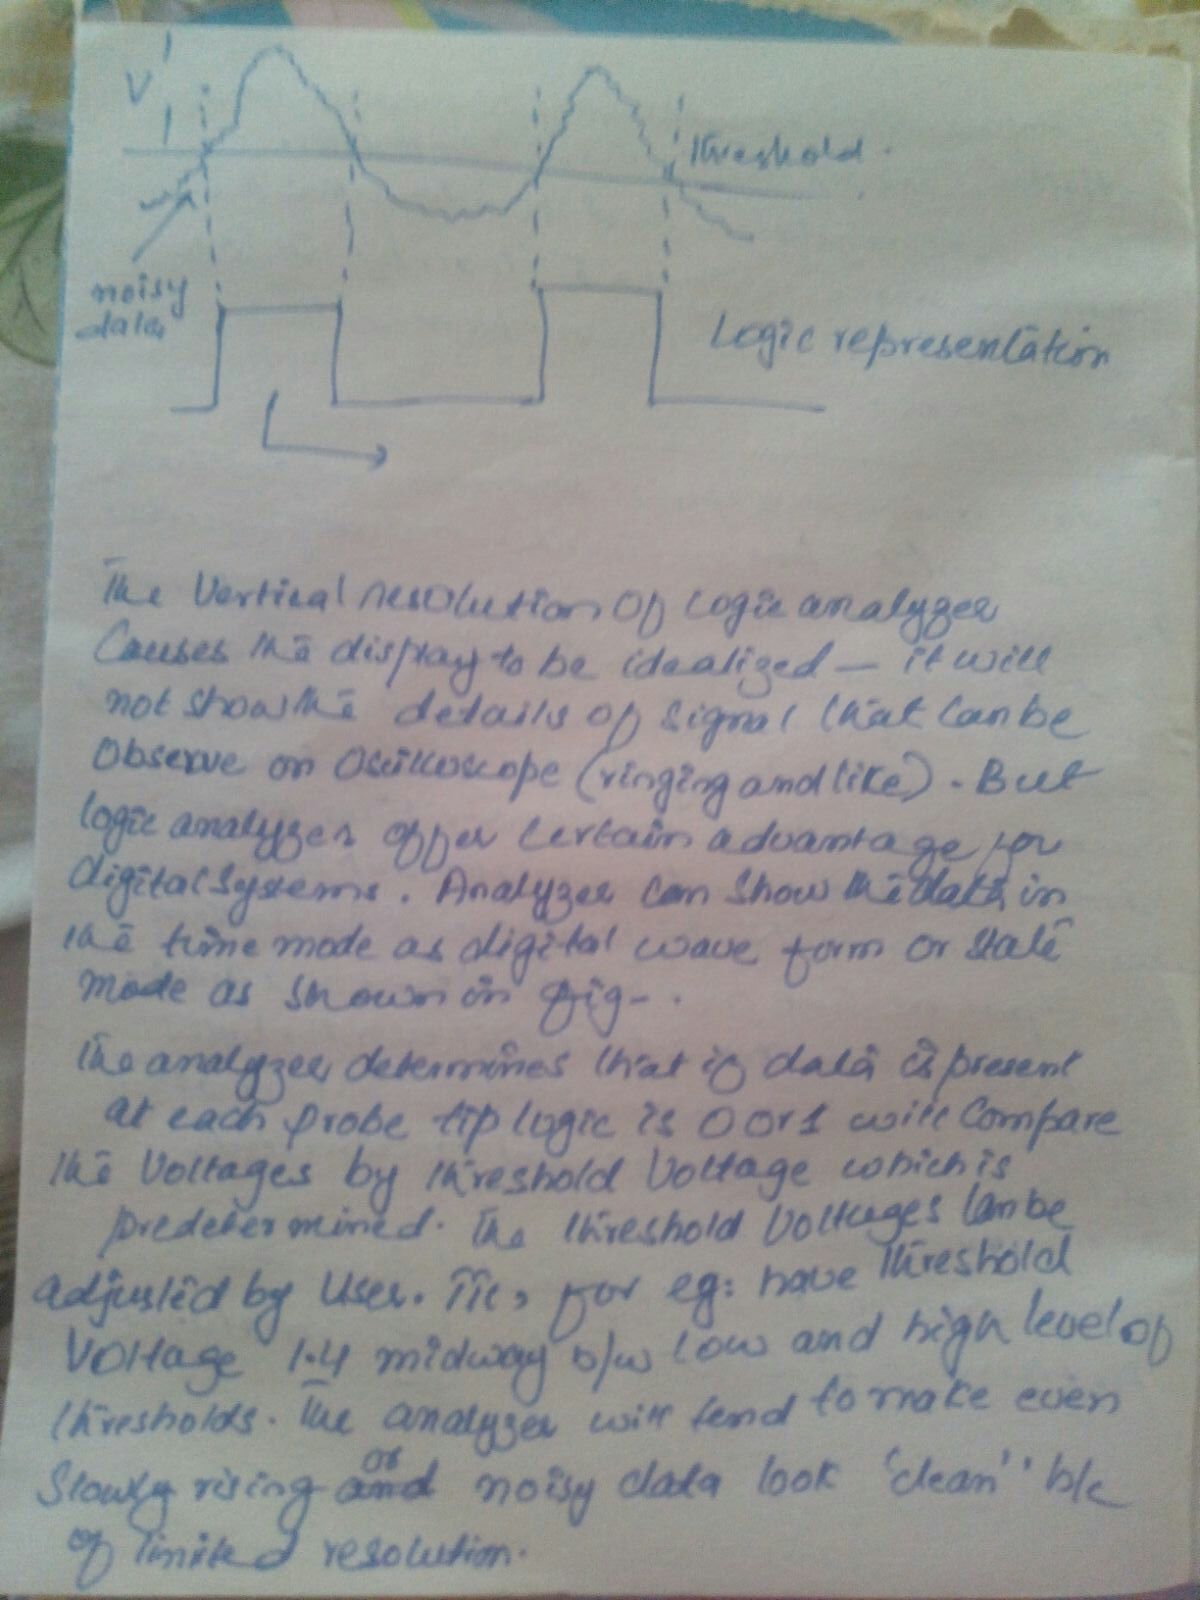 V
threshold.
noisy
data
Logic representation
The Vertical resolution of Logic analyzer
Causes the display to be idealized — it will
not show the details of signal that can be
Observe on Oscilloscope (ringing and like). But
logic analyzer offer certain advantage for
digital systems. Analyzer can show the data in
the time mode as digital wave form or state
mode as shown in fig-.
The analyzer determines that if data is present
at each probe tip logic is 0 or 1 will Compare
the Voltages by threshold Voltage which is
predetermined. The threshold Voltages can be
adjusted by User. TTL, for eg: have threshold
Voltage 1.4 midway b/w low and high level of
thresholds. The analyzer will tend to make even
Slowly rising or noisy data look 'clean'' b/c
of limited resolution.